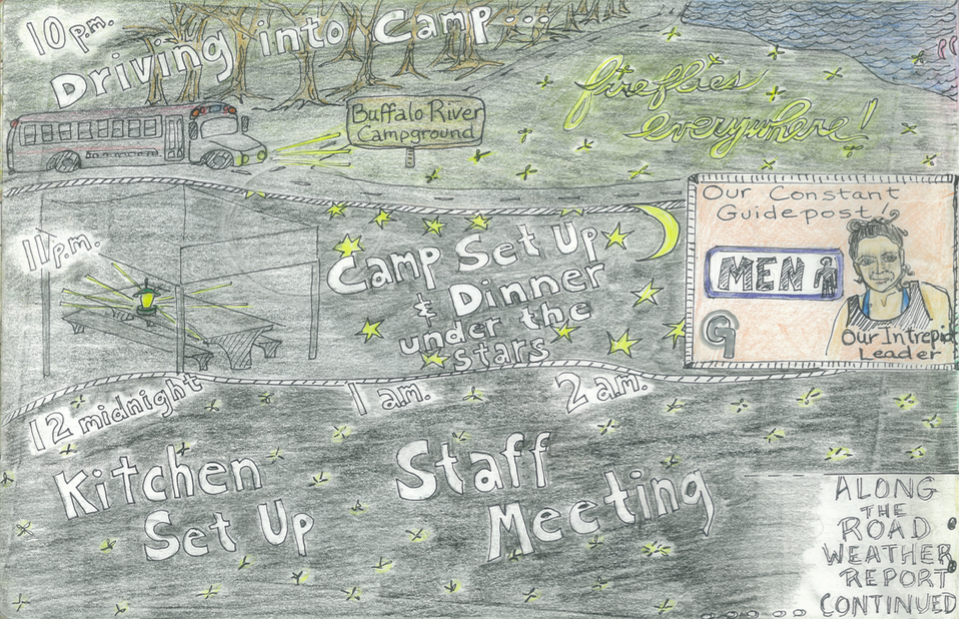 10 p.m.
Driving into Camp...
Buffalo River
Campground
fireflies
everywhere!
Our Constant
Guidepost!
MEN
G
Our Intrepid
Leader
11 p.m.
Camp Set Up
& Dinner
under the
Stars
12 midnight
1 a.m.
2 a.m.
Kitchen
Set Up
Staff
Meeting
ALONG
THE
ROAD
WEATHER
REPORT
CONTINUED